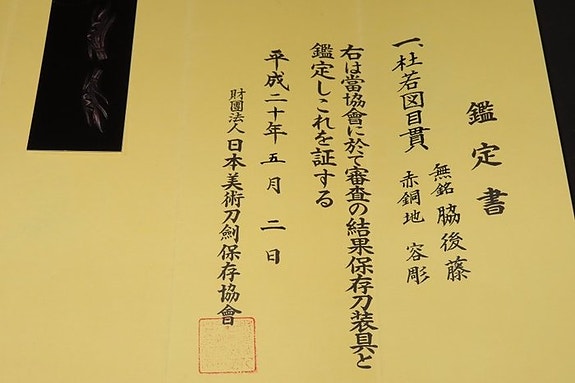 鑑定書
一、杜若図目貫 無銘 脇後藤
赤銅地 容彫
右は當協會に於て審査の結果保存刀装具と
鑑定しこれを証する
平成二十年五月二日
財團法人日本美術刀劍保存協會